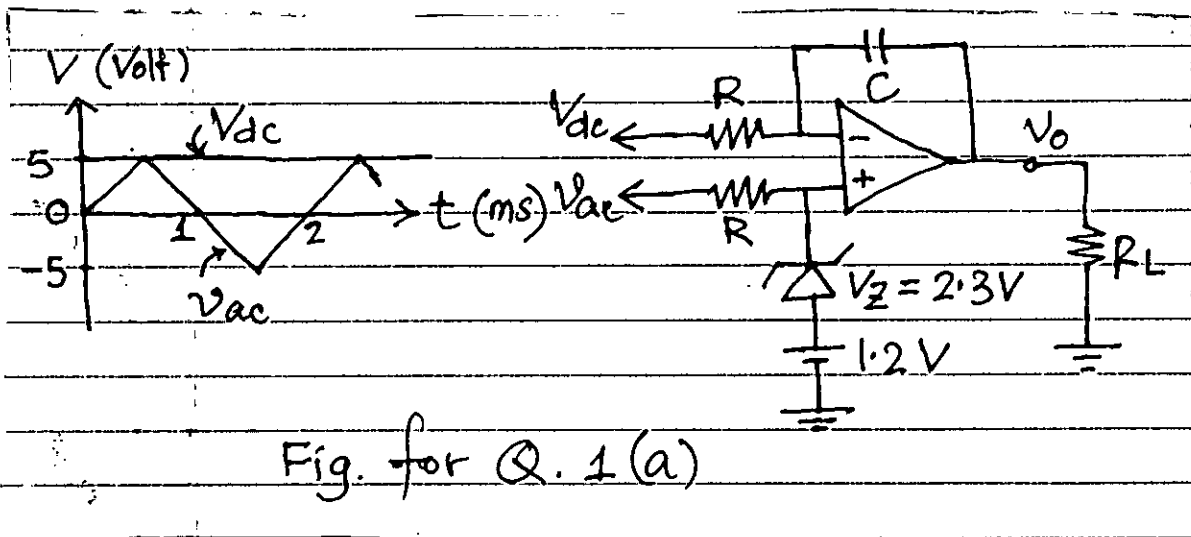 V (Volt)
Vdc
5
0
-5
1
2
t (ms)
vac
Vdc
R
C
vac
R
-
+
vo
RL
VZ = 2.3V
1.2 V
Fig. for Q. 1(a)